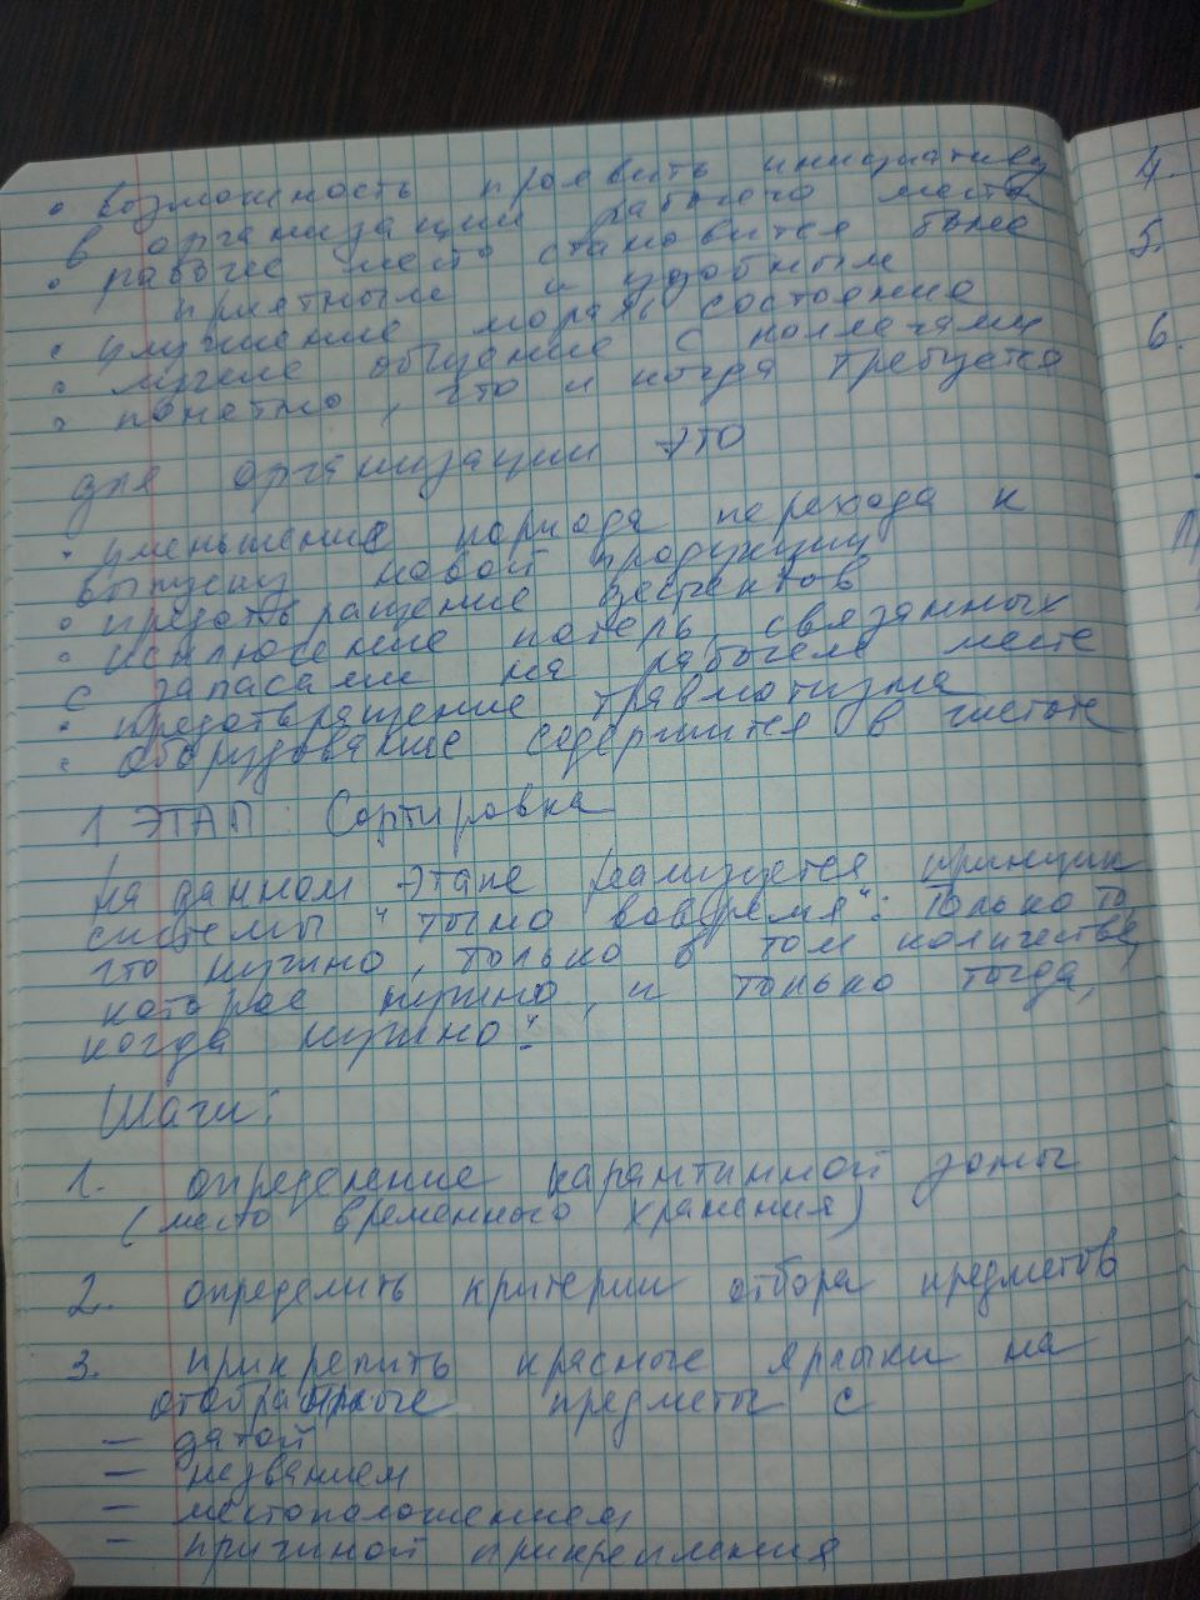 • возможность проявить инициативу
в организации рабочего места
• рабочее место становится более
приятным и удобным
• улучшение мораль состояние
• лучшее общение с коллегами
• понятно, что и когда требуется
для организации это
• уменьшение периода перехода к
выпуску новой продукции
• предотвращение дефектов
• исключение потерь, связанных
с запасами на рабочем месте
• предотвращение травмотизма
• оборудование содержится в чистоте
1 ЭТАП: Сортировка
На данном этапе реализуется принцип
системы "точно вовремя": Только то
что нужно, только в том количестве,
которое нужно, и только тогда,
когда нужно".
Шаги:
1. определение карантинной зоны
(место временного хранения)
2. определить критерии отбора предметов
3. прикрепить красные ярлыки на
отобранные предметы с
– датой
– названием
– местоположением
– причиной прикрепления
4.
5.
6.